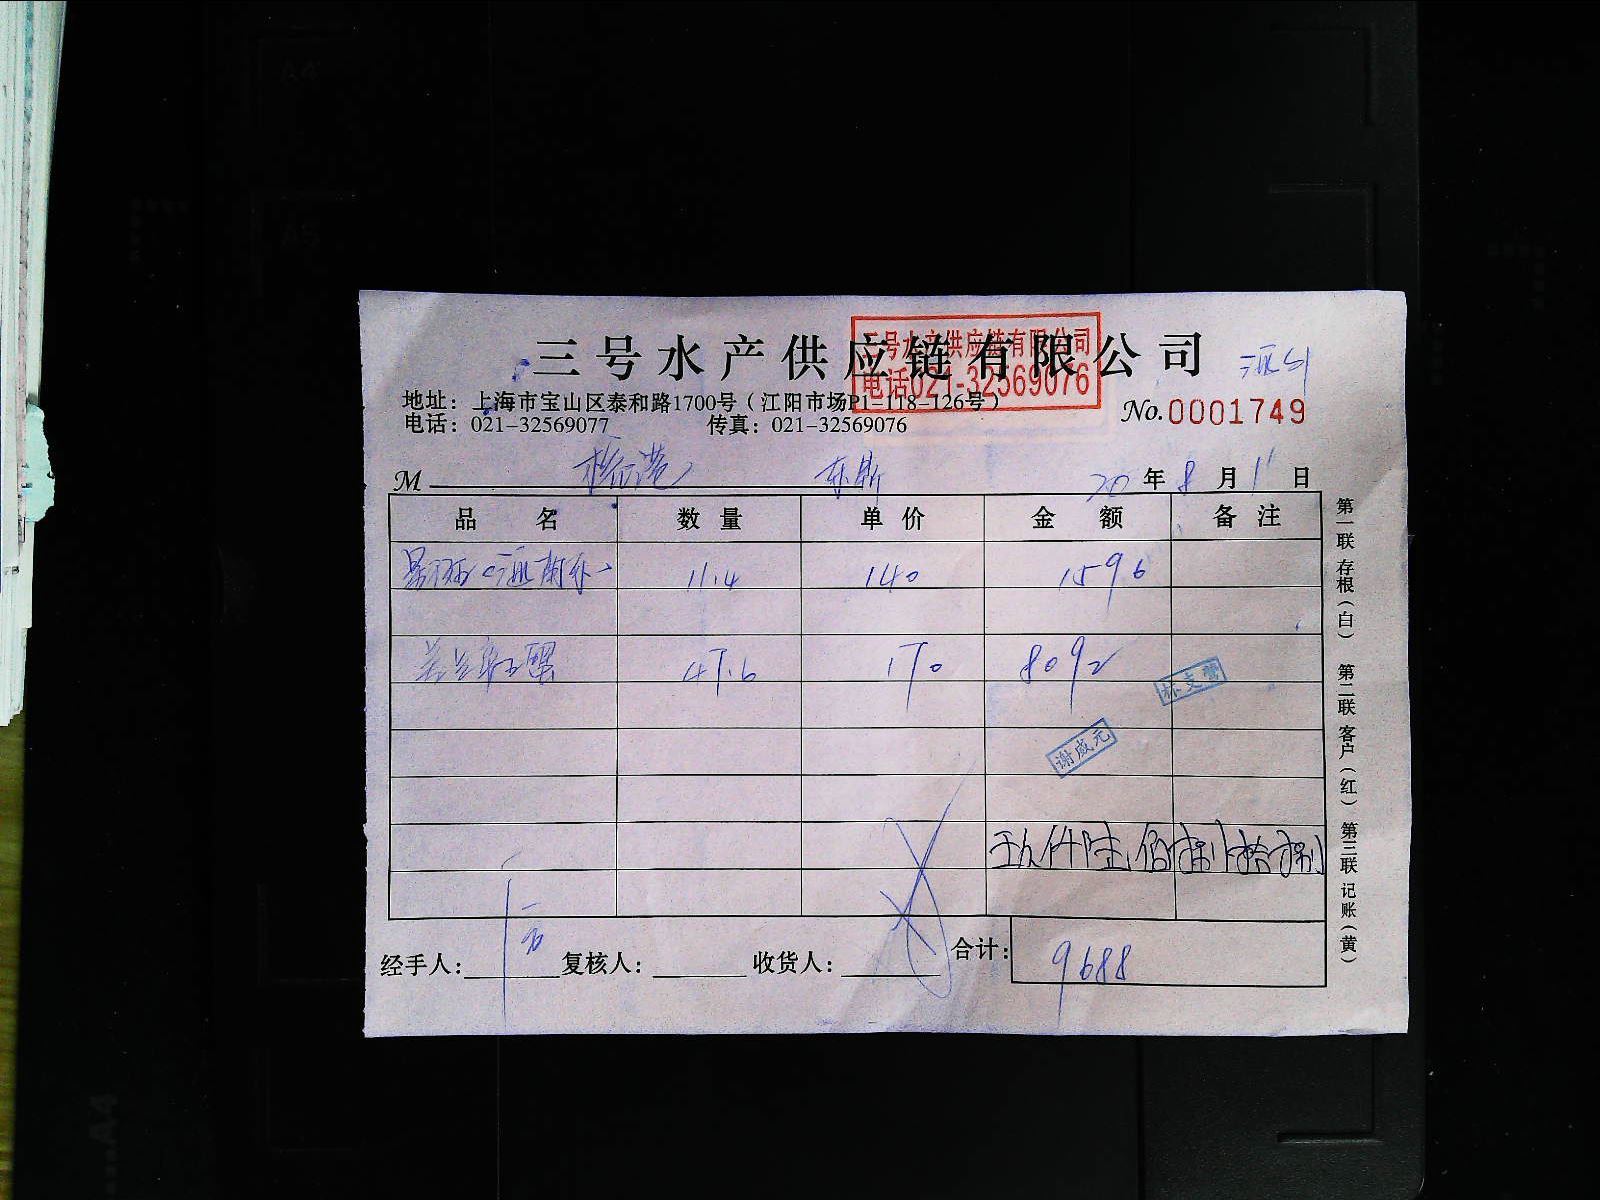 三号水产供应链有限公司
三号水产供应链有限公司
电话021-32569076
地址：上海市宝山区泰和路1700号（江阳市场P1-118-126号）
电话：021-32569077 传真：021-32569076
No.0001749
M
20 年 8 月 1 日
品 名 数 量 单 价 金 额 备 注
11.4 140 1596
47.6 170 8092
林支莺
谢咸元
玖仟陆佰捌拾捌
经手人： 复核人： 收货人： 合计： 9688
第一联 存根（白） 第二联 客户（红） 第三联 记账（黄）